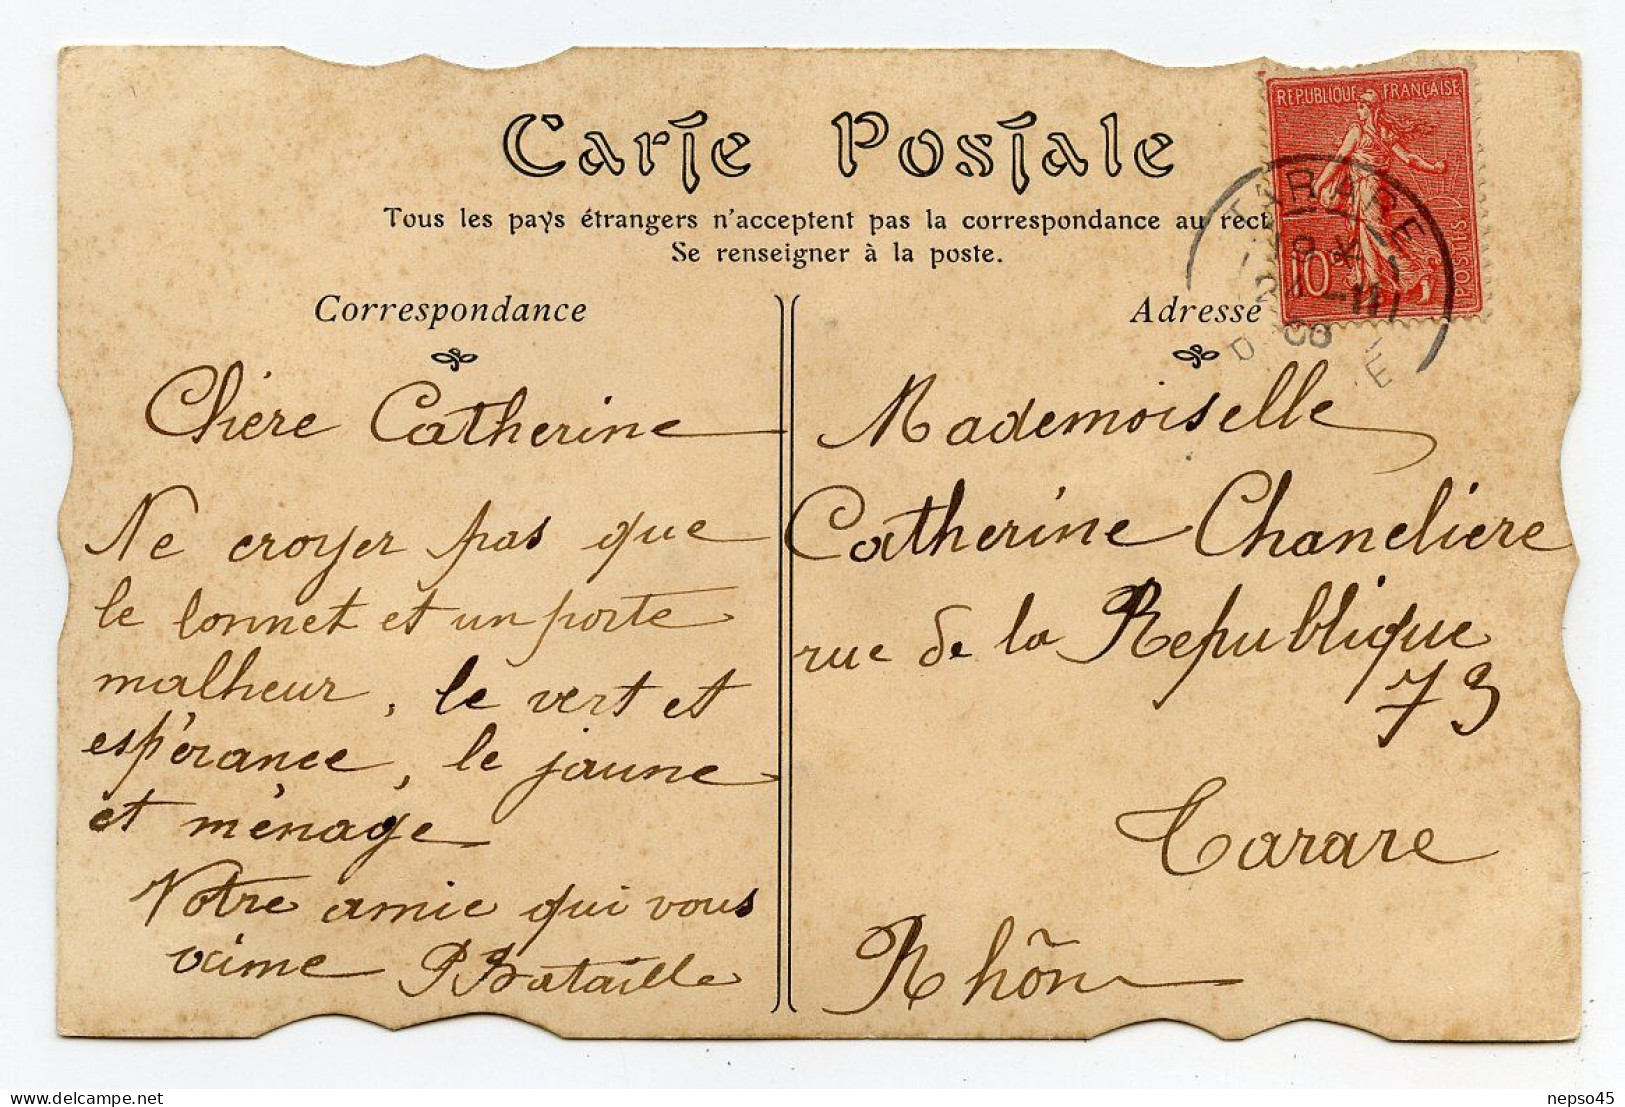 Carte Postale
Tous les pays étrangers n'acceptent pas la correspondance au rect
Se renseigner à la poste.
Correspondance
Chère Catherine
Ne croyer pas que
le bonnet et un porte
malheur, le vert et
espérance, le jaune
et ménage
Votre amie qui vous
aime P Bataille
Adresse
Mademoiselle
Catherine Chaneliere
rue de la Republique
73
Tarare
Rhône
REPUBLIQUE FRANÇAISE
10
POSTES
TARARE
08
delcampe.net
nepso45